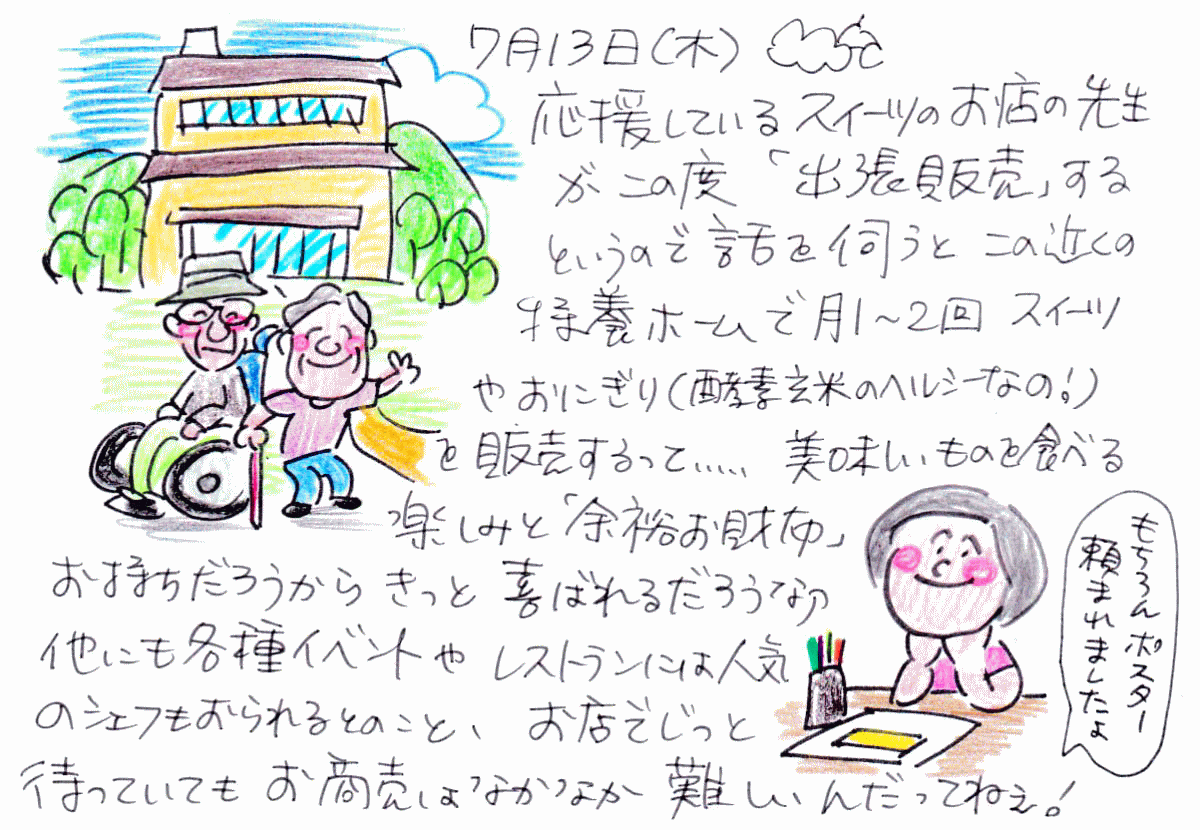 7月13日(木)
応援しているスイーツのお店の先生
がこの度「出張販売」する
というので話を伺うとこの近くの
特養ホームで月1~2回 スイーツ
やおにぎり(酵素玄米のヘルシーなの!)
を販売するって…… 美味しいものを食べる
楽しみと「余裕お財布」
お持ちだろうから きっと 喜ばれるだろうな♪
他にも各種イベントや レストランには人気
のシェフもおられるとのこと、 お店でじっと
待っていても お商売はなかなか 難しいんだってねぇ!
もちろんポスター
頼まれましたよ